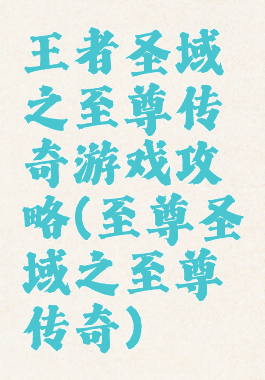 王者圣域
之至尊传
奇游戏攻
略(至尊圣
域之至尊
传奇)